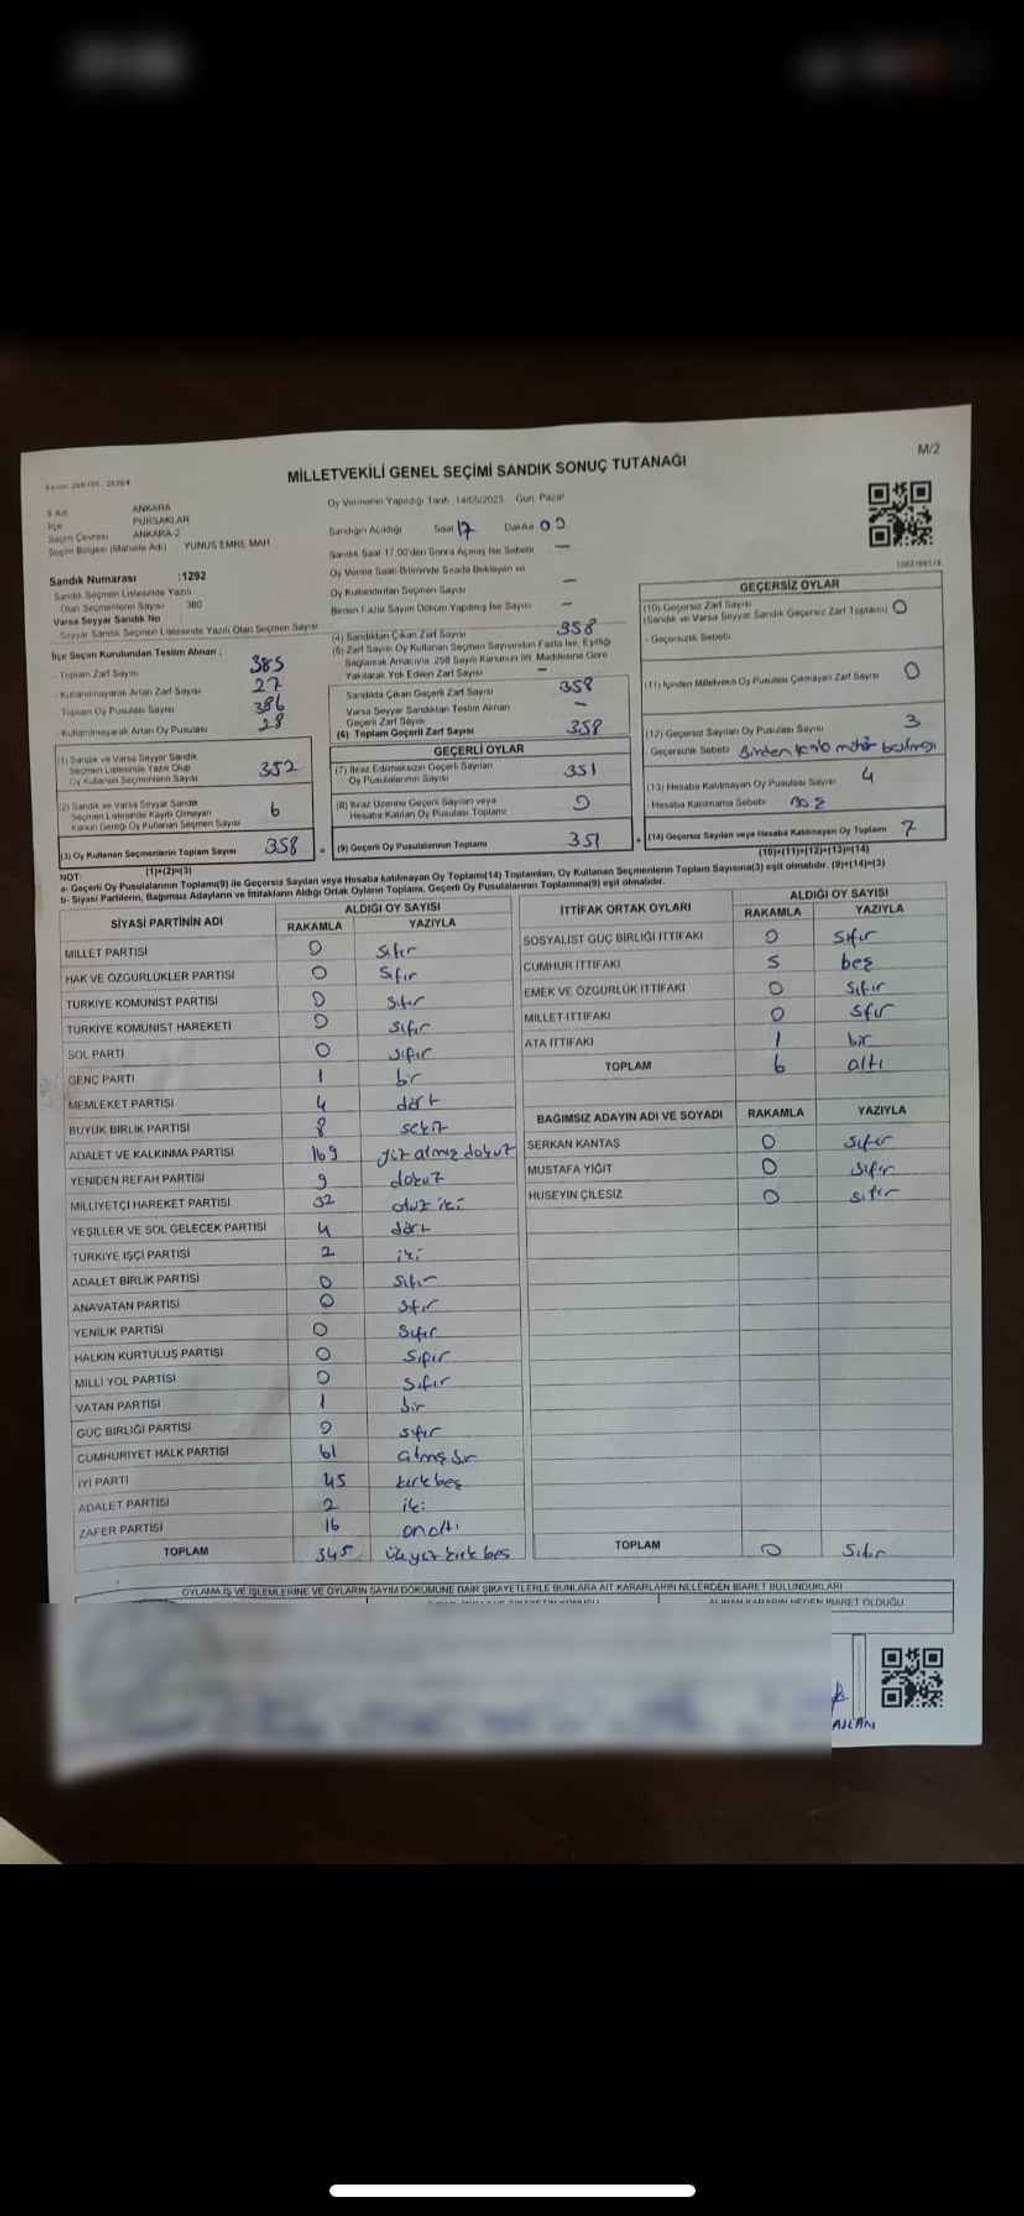 M/2
MİLLETVEKİLİ GENEL SEÇİMİ SANDIK SONUÇ TUTANAĞI
ANKARA
İlçe PURSAKLAR
Seçim Çevresi ANKARA-2
Seçim Bölgesi (Mahalle Adı) YUNUS EMRE MAH
Sandık Numarası :1292
Sandık Seçmen Listesinde Yazılı
Olan Seçmenlerin Sayısı 380
Varsa Seyyar Sandık No
Seyyar Sandık Seçmen Listesinde Yazılı Olan Seçmen Sayısı
Oy Vermenin Yapıldığı Tarih 14/05/2023 Gün Pazar
Sandığın Açıldığı Saat 17 Dakika 00
Sandık Saat 17.00'den Sonra Açılmış İse Sebebi —
Oy Verme Saati Bitiminde Sırada Bekleyen ve
Oy Kullandırılan Seçmen Sayısı —
Birden Fazla Sayım Döküm Yapılmış İse Sayısı —
İlçe Seçim Kurulundan Teslim Alınan :
Toplam Zarf Sayısı 385
Kullanılmayarak Artan Zarf Sayısı 27
Toplam Oy Pusulası Sayısı 386
Kullanılmayarak Artan Oy Pusulası 28
(1) Sandık ve Varsa Seyyar Sandık
Seçmen Listesinde Yazılı Olup
Oy Kullanan Seçmenlerin Sayısı 352
(2) Sandık ve Varsa Seyyar Sandık
Seçmen Listesinde Kayıtlı Olmayan
Kanun Gereği Oy Kullanan Seçmen Sayısı 6
(3) Oy Kullanan Seçmenlerin Toplam Sayısı 358
(1)+(2)=(3)
(4) Sandıktan Çıkan Zarf Sayısı 358
(5) Zarf Sayısı Oy Kullanan Seçmen Sayısından Fazla İse, Eşitliği
Sağlamak Amacıyla 298 Sayılı Kanunun Maddesine Göre
Yakılarak Yok Edilen Zarf Sayısı —
Sandıkta Çıkan Geçerli Zarf Sayısı 358
Varsa Seyyar Sandıktan Teslim Alınan
Geçerli Zarf Sayısı —
(6) Toplam Geçerli Zarf Sayısı 358
GEÇERLİ OYLAR
(7) İtiraz Edilmeksizin Geçerli Sayılan
Oy Pusulalarının Sayısı 351
(8) İtiraz Üzerine Geçerli Sayılan veya
Hesaba Katılan Oy Pusulası Toplamı 0
(9) Geçerli Oy Pusulalarının Toplamı 351
GEÇERSİZ OYLAR
(10) Geçersiz Zarf Sayısı
(Sandık ve Varsa Seyyar Sandık Geçersiz Zarf Toplamı) 0
- Geçersizlik Sebebi
(11) İçinden Milletvekili Oy Pusulası Çıkmayan Zarf Sayısı 0
(12) Geçersiz Sayılan Oy Pusulası Sayısı 3
Geçersizlik Sebebi Birden fazla mühür basılması
(13) Hesaba Katılmayan Oy Pusulası Sayısı 4
Hesaba Katılmama Sebebi boş
(14) Geçersiz Sayılan veya Hesaba Katılmayan Oy Toplamı 7
(10)+(11)+(12)+(13)=(14)
NOT:
a- Geçerli Oy Pusulalarının Toplamı(9) ile Geçersiz Sayılan veya Hesaba katılmayan Oy Toplamı(14) Toplamları, Oy Kullanan Seçmenlerin Toplam Sayısına(3) eşit olmalıdır. (9)+(14)=(3)
b- Siyasi Partilerin, Bağımsız Adayların ve İttifakların Aldığı Ortak Oyların Toplamı, Geçerli Oy Pusulalarının Toplamına(9) eşit olmalıdır.
SİYASİ PARTİNİN ADI ALDIĞI OY SAYISI
RAKAMLA YAZIYLA
MİLLET PARTİSİ 0 sıfır
HAK VE ÖZGÜRLÜKLER PARTİSİ 0 sıfır
TÜRKİYE KOMÜNİST PARTİSİ 0 sıfır
TÜRKİYE KOMÜNİST HAREKETİ 0 sıfır
SOL PARTİ 0 sıfır
GENÇ PARTİ 1 bir
MEMLEKET PARTİSİ 4 dört
BÜYÜK BİRLİK PARTİSİ 8 sekiz
ADALET VE KALKINMA PARTİSİ 169 yüz atmış dokuz
YENİDEN REFAH PARTİSİ 9 dokuz
MİLLİYETÇİ HAREKET PARTİSİ 32 otuz iki
YEŞİLLER VE SOL GELECEK PARTİSİ 4 dört
TÜRKİYE İŞÇİ PARTİSİ 2 iki
ADALET BİRLİK PARTİSİ 0 sıfır
ANAVATAN PARTİSİ 0 sıfır
YENİLİK PARTİSİ 0 sıfır
HALKIN KURTULUŞ PARTİSİ 0 sıfır
MİLLİ YOL PARTİSİ 0 sıfır
VATAN PARTİSİ 1 bir
GÜÇ BİRLİĞİ PARTİSİ 0 sıfır
CUMHURİYET HALK PARTİSİ 61 atmış bir
İYİ PARTİ 45 kırk beş
ADALET PARTİSİ 2 iki
ZAFER PARTİSİ 16 onaltı
TOPLAM 345 üçyüz kırk beş
İTTİFAK ORTAK OYLARI ALDIĞI OY SAYISI
RAKAMLA YAZIYLA
SOSYALİST GÜÇ BİRLİĞİ İTTİFAKI 0 sıfır
CUMHUR İTTİFAKI 5 beş
EMEK VE ÖZGÜRLÜK İTTİFAKI 0 sıfır
MİLLET İTTİFAKI 0 sıfır
ATA İTTİFAKI 1 bir
TOPLAM 6 altı
BAĞIMSIZ ADAYIN ADI VE SOYADI RAKAMLA YAZIYLA
SERKAN KANTAŞ 0 sıfır
MUSTAFA YİĞİT 0 sıfır
HÜSEYİN ÇİLESİZ 0 sıfır
TOPLAM 0 sıfır
OYLAMA İŞ VE İŞLEMLERİNE VE OYLARIN SAYIM DÖKÜMÜNE DAİR ŞİKAYETLERLE BUNLARA AİT KARARLARIN NELERDEN İBARET BULUNDUKLARI
ALINAN KARARIN NEDEN İBARET OLDUĞU